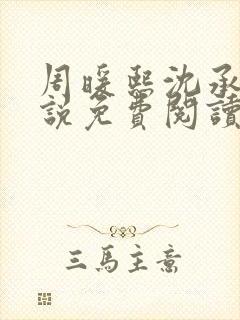 周暖熙沈承
說免費閱讀
三馬主意